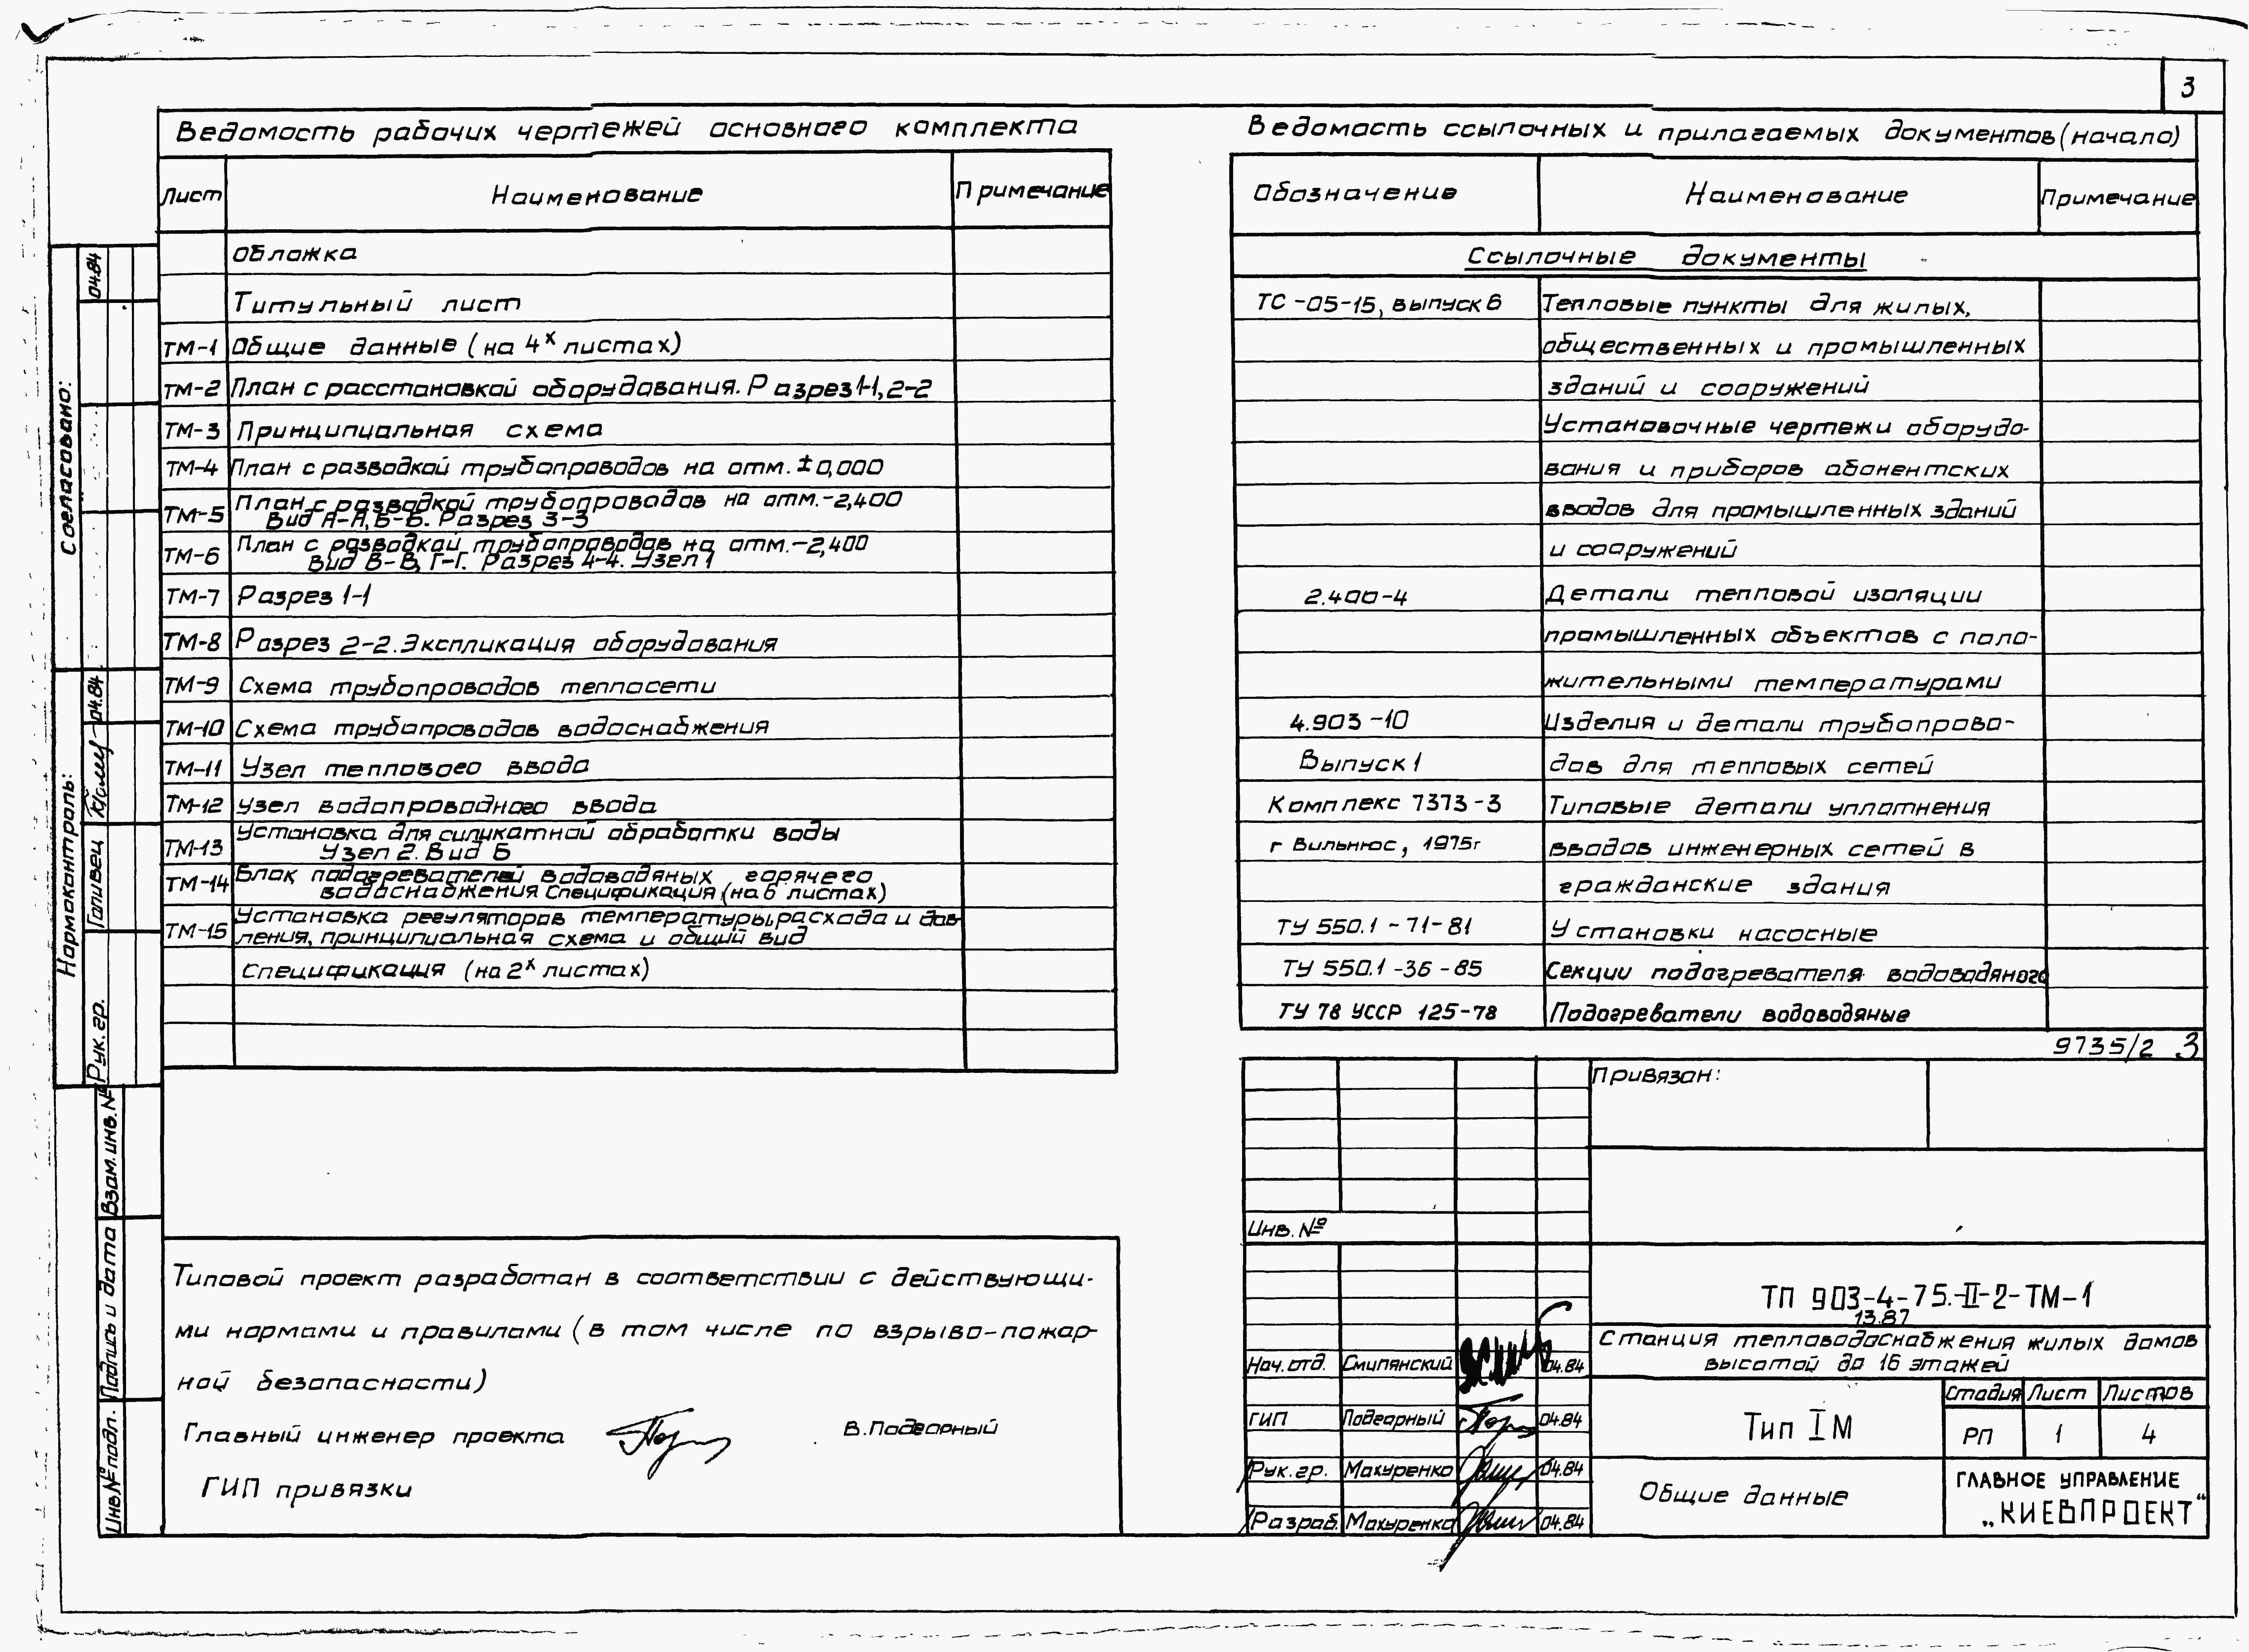 3
Ведомость рабочих чертежей основного комплекта
Лист Наименование Примечание
Обложка
Титульный лист
ТМ-1 Общие данные (на 4х листах)
ТМ-2 План с расстановкой оборудования. Разрез 1-1, 2-2
ТМ-3 Принципиальная схема
ТМ-4 План с разводкой трубопроводов на отм. ±0,000
ТМ-5 План с разводкой трубопроводов на отм.-2,400
Вид А-А, Б-Б. Разрез 3-3
ТМ-6 План с разводкой трубопроводов на отм.-2,400
Вид В-В, Г-Г. Разрез 4-4. Узел 1
ТМ-7 Разрез 1-1
ТМ-8 Разрез 2-2. Экспликация оборудования
ТМ-9 Схема трубопроводов теплосети
ТМ-10 Схема трубопроводов водоснабжения
ТМ-11 Узел теплового ввода
ТМ-12 Узел водопроводного ввода
ТМ-13 Установка для силикатной обработки воды
Узел 2. Вид Б
ТМ-14 Блок подогревателей водоводяных горячего
водоснабжения Спецификация (на 6 листах)
ТМ-15 Установка регуляторов температуры, расхода и дав-
ления, принципиальная схема и общий вид
Спецификация (на 2х листах)
Ведомость ссылочных и прилагаемых документов (начало)
Обозначение Наименование Примечание
Ссылочные документы
ТС-05-15, выпуск 6 Тепловые пункты для жилых,
общественных и промышленных
зданий и сооружений
Установочные чертежи оборудо-
вания и приборов абонентских
вводов для промышленных зданий
и сооружений
2.400-4 Детали тепловой изоляции
промышленных объектов с поло-
жительными температурами
4.903-10 Изделия и детали трубопрово-
Выпуск 1 дов для тепловых сетей
Комплекс 7373-3 Типовые детали уплотнения
г Вильнюс, 1975г вводов инженерных сетей в
гражданские здания
ТУ 550.1-71-81 Установки насосные
ТУ 550.1-36-85 Секции подогревателя водоводяного
ТУ 78 УССР 125-78 Подогреватели водоводяные
9735/2 3
Согласовано:
04.84
Нормоконтроль:
Рук. гр. Голивец 04.84
Взам. инв. №
Подпись и дата
Инв № подл.
Типовой проект разработан в соответствии с действующи-
ми нормами и правилами (в том числе по взрыво-пожар-
ной безопасности)
Главный инженер проекта В. Подгорный
ГИП привязки
Привязан:
Инв. №
ТП 903-4-75.-II-2-ТМ-1
13.87
Станция тепловодоснабжения жилых домов
высотой до 16 этажей
Нач. отд. Смилянский 04.84
ГИП Подгорный 04.84
Рук. гр. Макуренко 04.84
Разраб. Макуренко 04.84
Тип I М
Стадия Лист Листов
РП 1 4
Общие данные
ГЛАВНОЕ УПРАВЛЕНИЕ
„КИЕВПРОЕКТ“